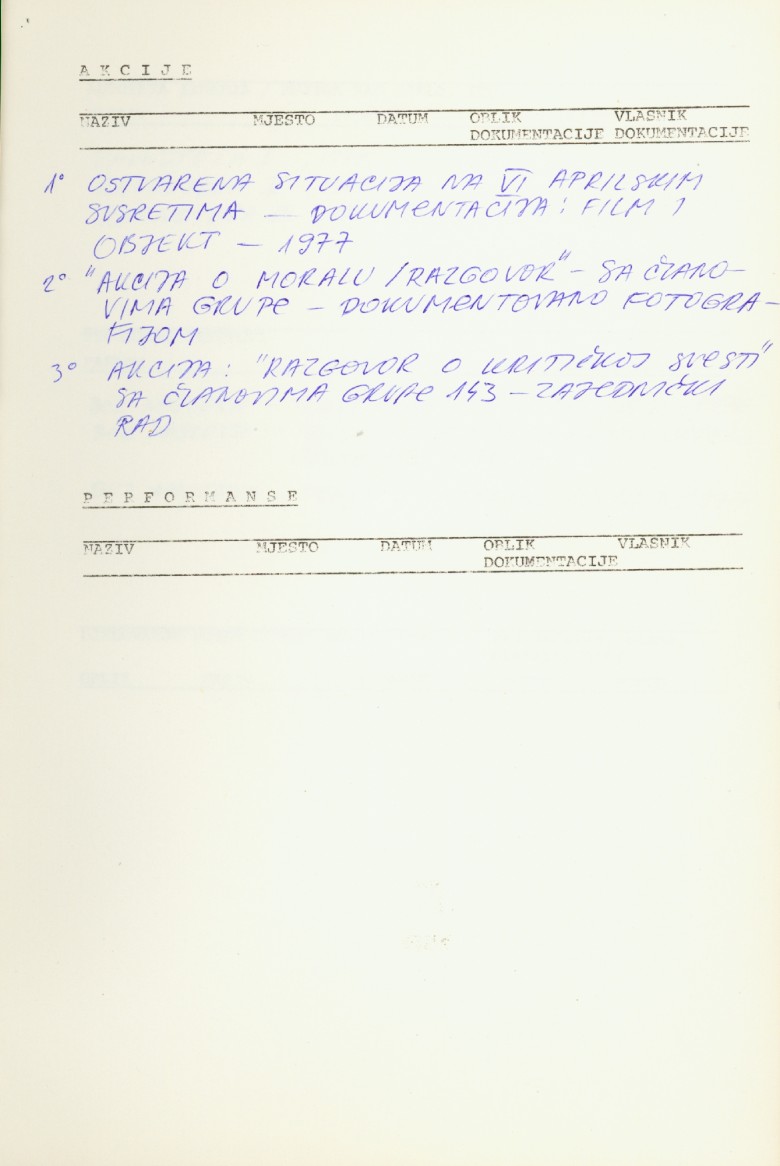 AKCIJE
NAZIV MJESTO DATUM OBLIK VLASNIK
DOKUMENTACIJE DOKUMENTACIJE
1° OSTVARENA SITUACIJA NA VI APRILSKIM
SUSRETIMA — DOKUMENTACIJA: FILM I
OBJEKT — 1977
2° "AKCIJA O MORALU /RAZGOVOR" – SA ČLANO-
VIMA GRUPE – DOKUMENTOVANO FOTOGRA-
FIJOM
3° AKCIJA: "RAZGOVOR O KRITIČKOJ SVESTI"
SA ČLANOVIMA GRUPE 143 – ZAJEDNIČKI
RAD
PERFORMANSE
NAZIV MJESTO DATUM OBLIK VLASNIK
DOKUMENTACIJE